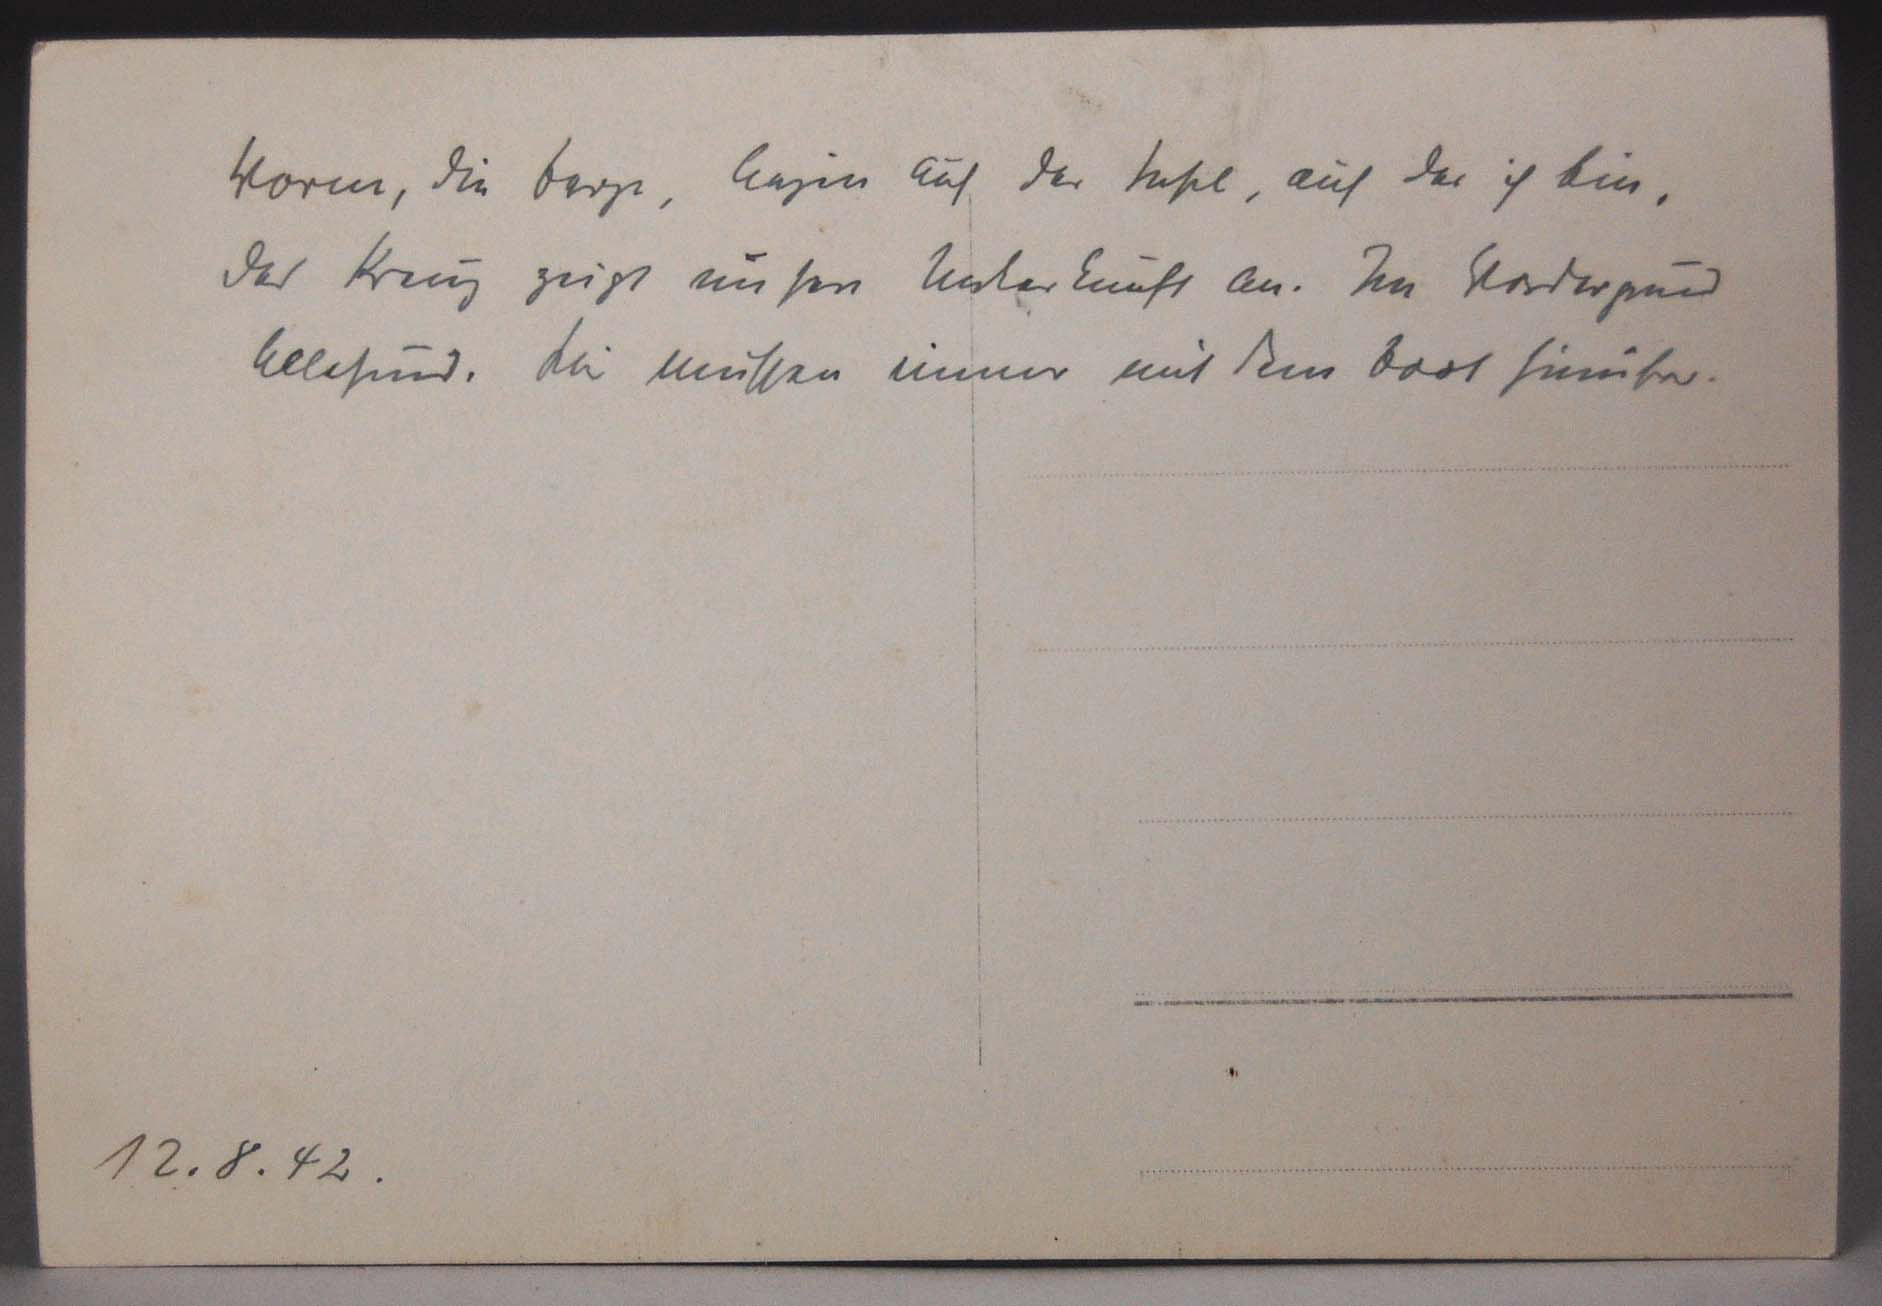 Vorne, die Berge, liegen auf der Insel, auf der ich bin.
Das Kreuz zeigt unsere Unterkunft an. Im Vordergrund
Allesund. Wir müssen immer mit dem Boot hinüber.
12.8.42.